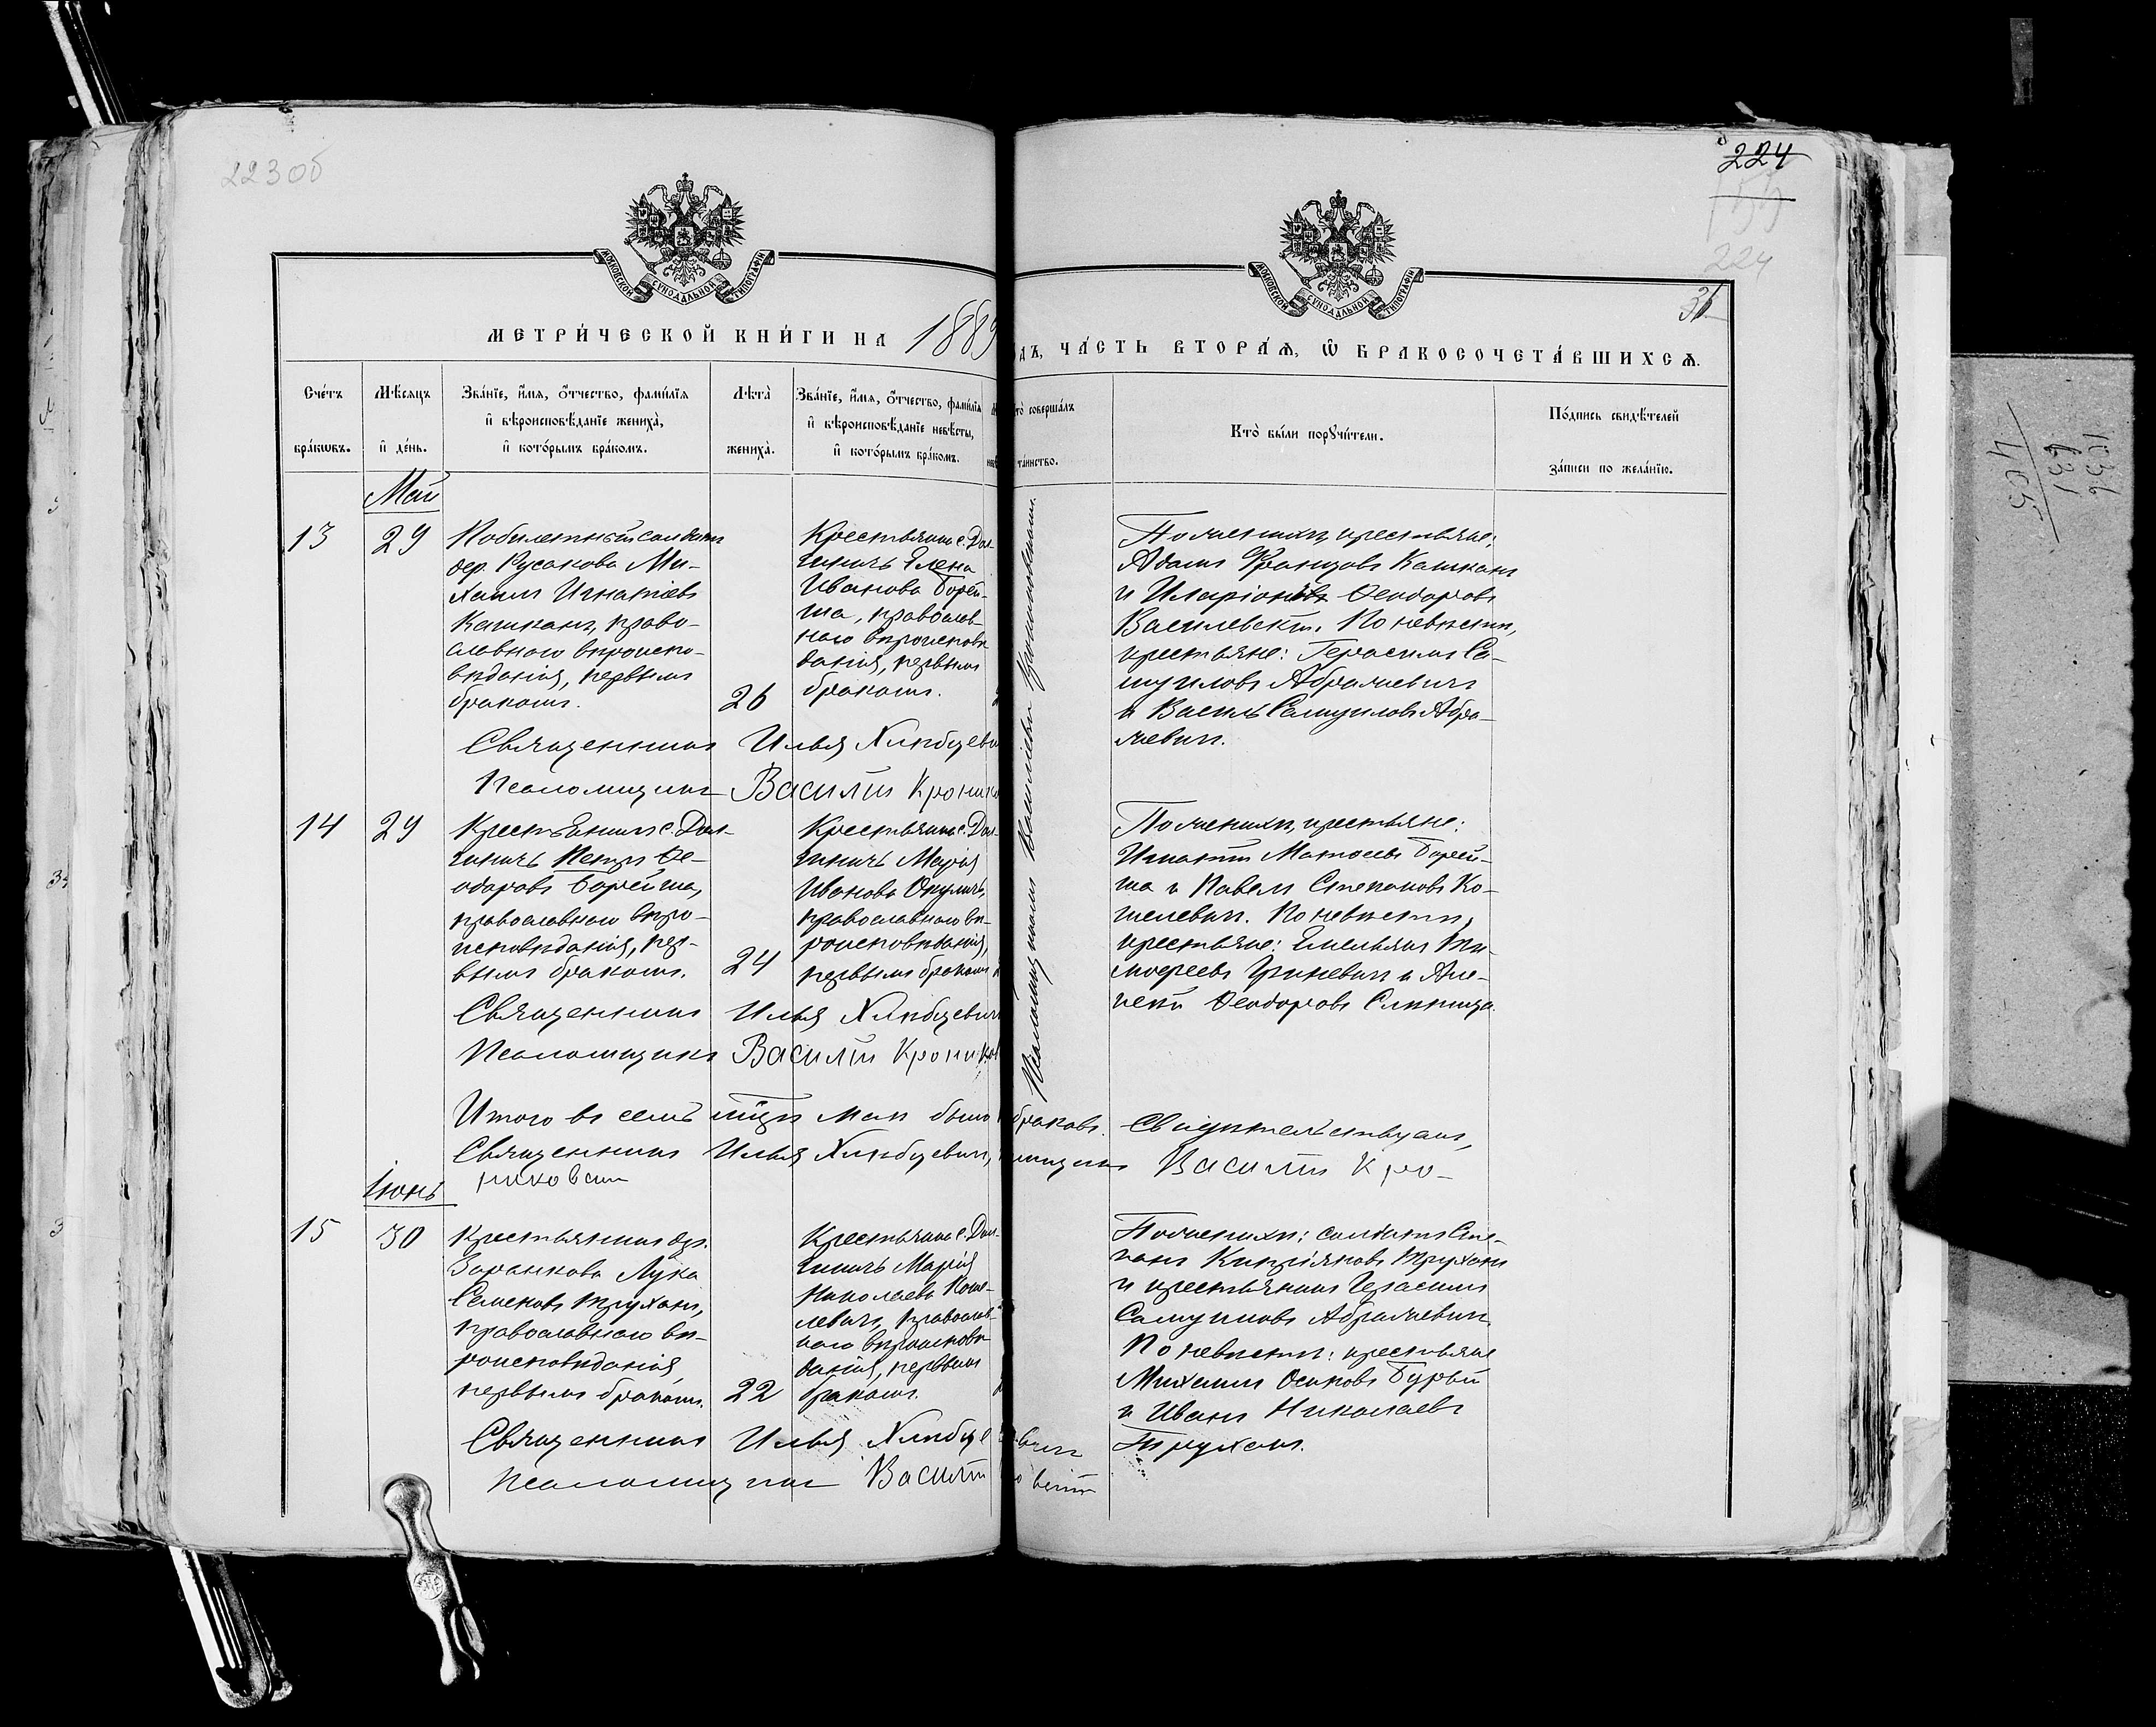 223об
224
224
36
МОСКОВСКОЙ СѴНОДАЛЬНОЙ ТИПОГРАФІИ
МОСКОВСКОЙ СѴНОДАЛЬНОЙ ТИПОГРАФІИ
МЕТРИ́ЧЕСКОЙ КНИ́ГИ НА 1889
ДЪ, ЧА́СТЬ ВТОРА́Ѧ, Ѡ҆ БРАКОСОЧЕТА́ВШИХСѦ.
Сче́тъ бра́кѡвъ.
Мѣ́сяцъ и҆ де́нь.
Зва́нїе, и҆́мѧ, ѻ҆́тчество, фами́лїѧ
и҆ вѣроисповѣ́данїе жениха̀,
и҆ кото́рымъ бра́комъ.
Лѣта̀ жениха̀.
Зва́нїе, и҆́мѧ, ѻ҆́тчество, фами́лїѧ
и҆ вѣроисповѣ́данїе невѣ́сты,
и҆ кото́рымъ бра́комъ.
то̀ соверша́лъ
та́инство.
Кто̀ бы́ли порꙋчи́тели.
По́дпись свидѣ́телей
за́писи по жела́нїю.
Май
13
29
дер. Русакова Ми-
хаилъ Игнатіевъ
Кашканъ, право-
славнаго вѣроиспо-
вѣданія, первымъ
бракомъ.
26
Крестьянка с. Дол-
гиничъ Елена
Иванова Борей-
ша, православ-
наго вѣроисповѣ
данія, первымъ
бракомъ.
По женихѣ, крестьяне:
Адамъ Францовъ Кашканъ
и Иларіонъ Ѳеодоровъ
Василевскій. По невѣстѣ,
крестьяне: Герасимъ Са-
муиловъ Абрамевичъ
и Василь Самуиловъ Абра-
мевичъ.
Священникъ Илья Хлѣбцеви
Псаломщикъ Василій Крони
14
29
Крестьянинъ с. Дол-
гиничъ Петръ Ѳе-
одоровъ Борейша,
православнаго вѣро-
исповѣданія, пер-
вымъ бракомъ.
24
Крестьянка с. Дол-
гиничъ Марія
Иванова Окуличъ,
православнаго вѣ-
роисповѣданія,
первымъ бракомъ
По женихѣ, крестьяне:
Игнатій Матѳеевъ Борей-
ша и Павелъ Степановъ Ко-
шелевичъ. По невѣстѣ,
крестьяне: Емельянъ Ти-
моѳеевъ Гриневичъ и Але-
ксѣй Ѳеодоровъ
Священникъ Илья Хлѣбцевич
Псаломщикъ Василій Крони
Итого въ семъ мцѣ маѣ было браковъ. Свидѣтельствуемъ,
Священникъ Илья Хлѣбцевичъ, мщикъ Василій Кро-
никовскій
Іюнь
15
30
Крестьянинъ дер.
Заранкова Лука
Семеновъ Труханъ,
православнаго вѣ-
роисповѣданія
первымъ бракомъ.
22
Крестьянка с. Дол-
гиничъ Марія
Николаева Коше-
левичъ, православ-
наго вѣроисповѣ
данія, первымъ
бракомъ.
По женихѣ: солдатъ Сте-
панъ Кипріяновъ Труханъ
и крестьянинъ Герасимъ
Самуиловъ Абрамевичъ.
По невѣстѣ: крестьяне
Михаилъ Осиповъ Бурый
и Иванъ Николаевъ
Труханъ.
Священникъ Илья Хлѣбце вичъ
Псаломщикъ Василій
1036
631
405